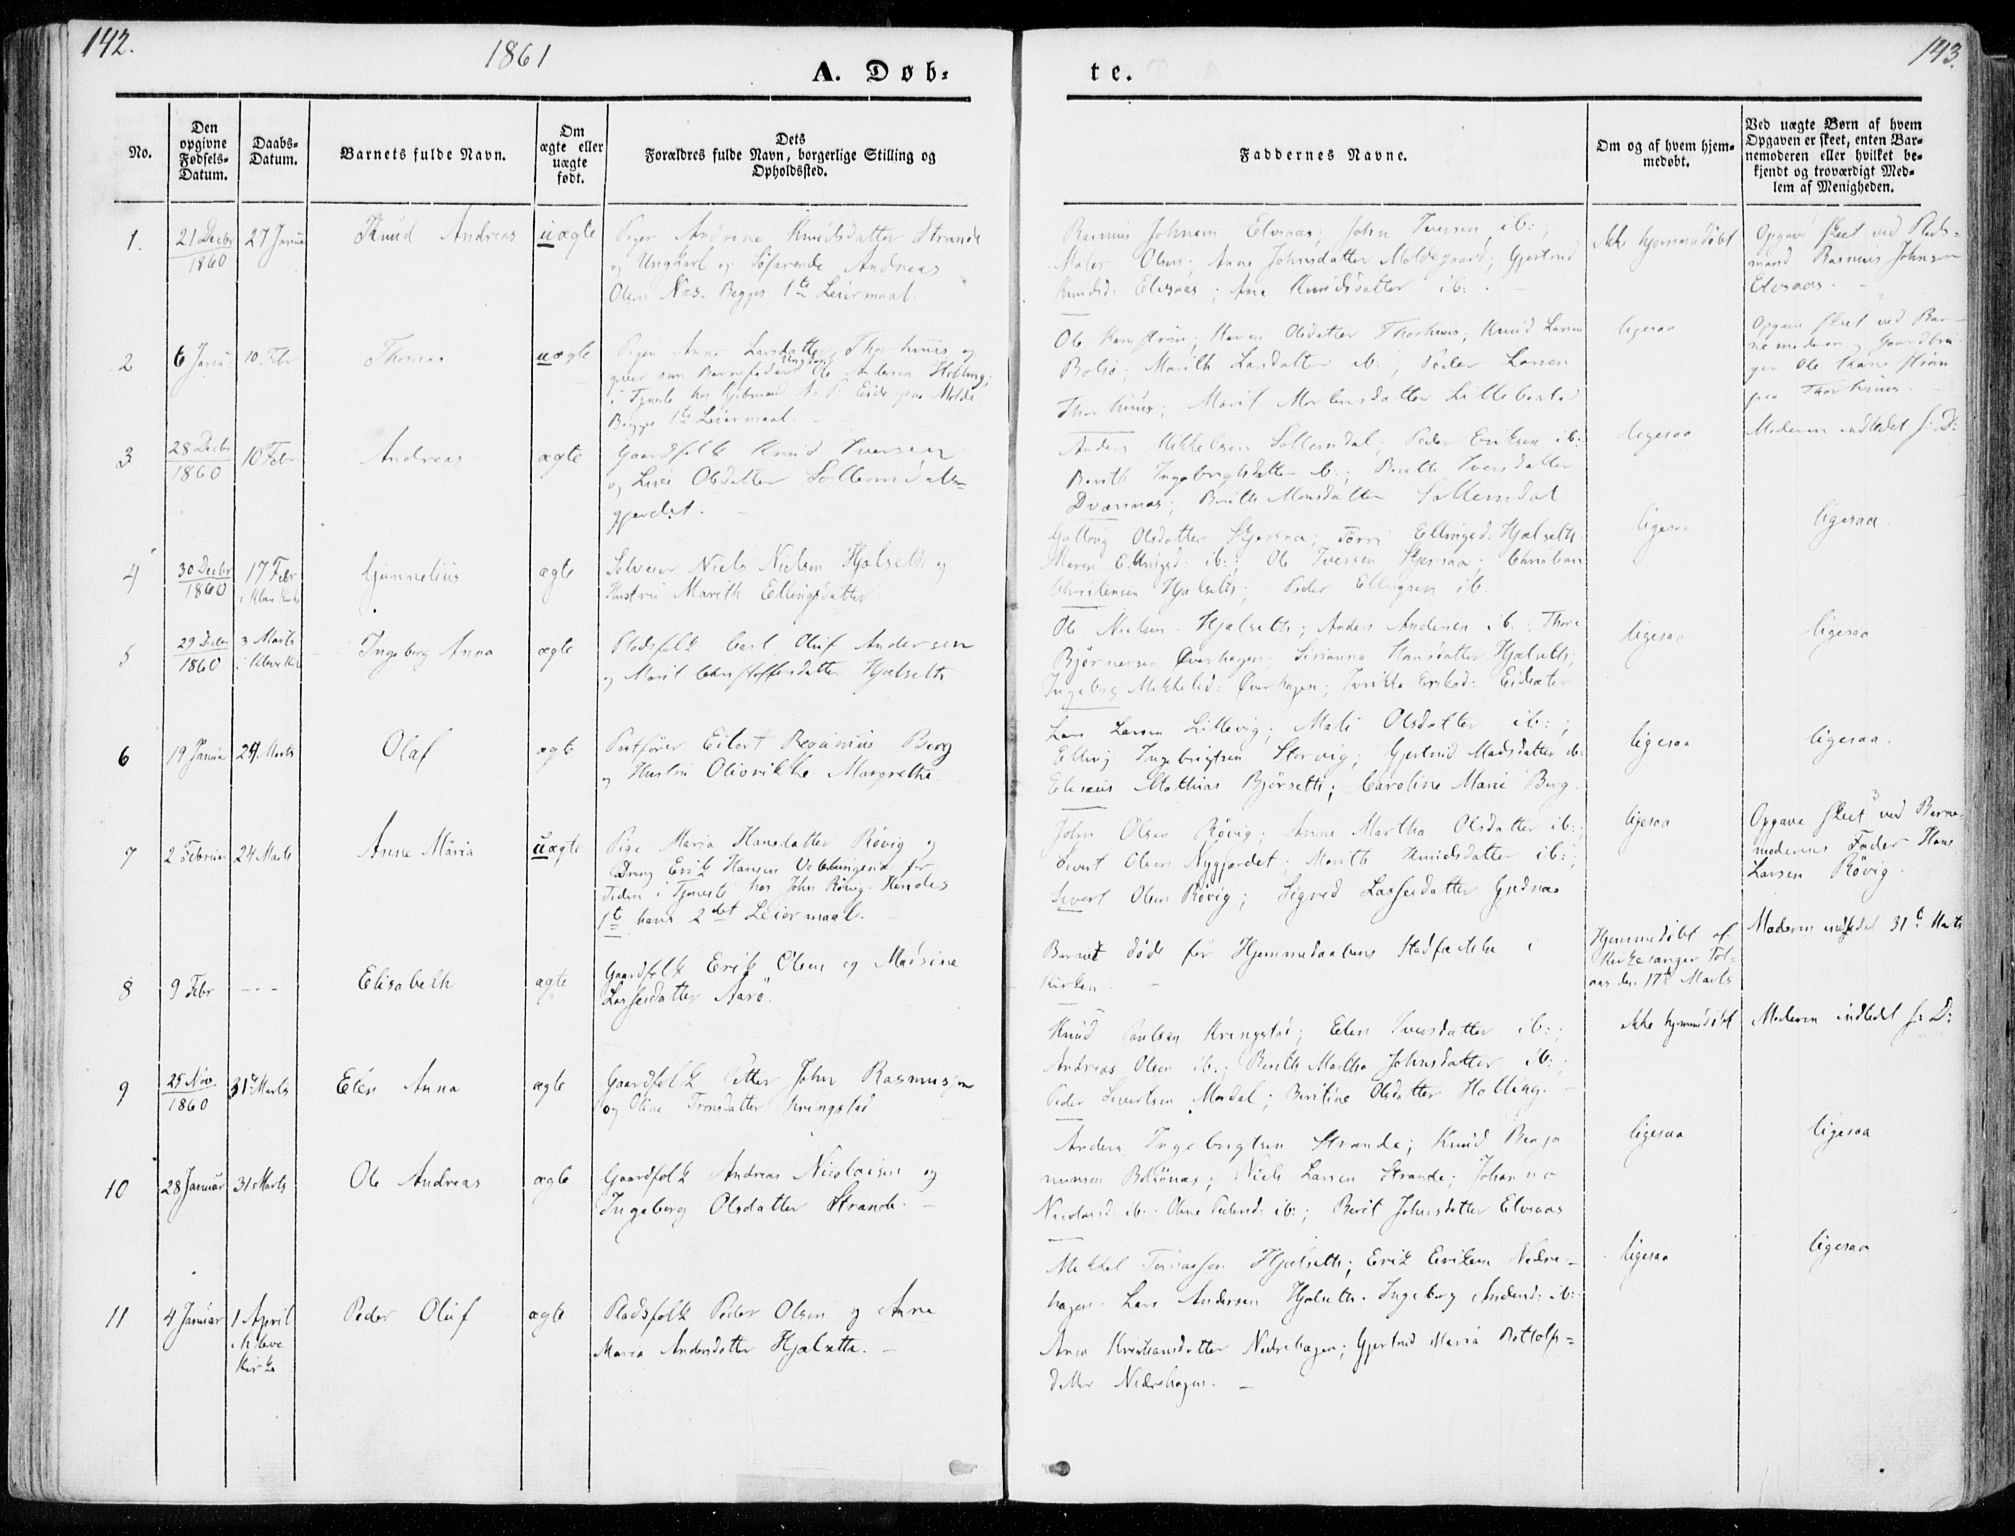 142.
1861
A. Døb-
te.
143.
No.
Den opgivne Fødsels-Datum.
Daabs-Datum.
Barnets fulde Navn.
Om ægte eller uægte født.
Dets Forældres fulde Navn, borgerlige Stilling og Opholdssted.
Faddernes Navne.
Om og af hvem hjem-medøbt.
Ved uægte Børn af hvem Opgaven er skeet, enten Bar-nemoderen eller hvilket be-kjendt og troværdigt Med-lem af Menigheden.
1.
21 Decbr 1860
27 Janua
Knud Andreas
uægte
Pigen Andrine Knudsdatter Strande
og Ungkarl og Søfarende Andreas
Olsen Næs. Begges 1te Leiermaal.
Rasmus Johnsen Elvsaas; John Iversen ib:;
Olsen; Anne Johnsdatter Moldegaard; Gjertrud
Knudsd: Elvsaas; Ane Knudsdatter ib:.
ikke hjemmedøbt
Opgave skeet ved Plads-
mand Rasmus Johnsen
Elvsaas.
2
6 Janu
10 Febr
Thomas
uægte
Pigen Anne Larsdatter Thorhuus og
som Barnefader Ungkarl Ole Andersen Holling;
i Tjeneste hos Eide paa Molde
Begges 1te Leiermaal.
Ole Hansstrøm; Karen Olsdatter Thorhuus; Knud Larsen
Bolsø; Marith Larsdatter ib:; Peder Larsen
Thorhuus; Marit
ligesaa
Opgave skeet ved Bar-
nemoderen og Gaardbru-
ger Ole Hansstrøm
paa Thorhuus.
3
28 Decbr 1860
10 Febr
Andreas
ægte
Gaardfolk Knud Iversen
og Lisei Olsdatter Søllemsdals-
gjerdet.
Anders Mikkelsen Søllemdal; Peder Eriksen ib:
Berith Ingebrigtsdatter ib:; Berith Iversdatter
Dværsnæs; Berith Monsdatter Søllemdal
ligesaa
Moderen indledet s: D:
4
30 Decbr 1860
17 Febr i Kleve Kirke
Gunnelius
ægte
Selveier Niels Nielsen Hjelseth og
Hustru Marith Ellingsdatter
Olsdatter Skjersaa; Ellingsd. Hjelseth
Maren Ellingsd: ib:; Ole Iversen Skjersaa; Christian
Christensen Hjelseth; Peder Ellingsen ib.
ligesaa
ligesaa.
5
29 Decbr 1860
3 Marts i Kleve Kirke
Ingeborg Anna
ægte
Pladsfolk Carl Oluf Andersen
og Marit Christoffersdatter Hjelseth
Ole Nielsen Hjelseth; Anders Andersen ib:; Thore
Bjørnersen Øverhagen; Hansdatter Hjelseth;
Ingeborg Mikkelsd: Øverhagen; Eidsæter
ligesaa
ligesaa
6
19 Janua
24 Marts
Olaf
ægte
Eilert Reganius Berg
og Hustru Olivrikke Margrethe.
Lars Larsen Lillevig; Mali Olsdatter ib:;
Elling Ingebrigtsen Storvig; Gjertrud Madsdatter ib:
Elisæus Mathias Bjørseth; Caroline Marie Berg.
ligesaa
ligesaa.
7
2 Februar
24 Marts
Anne Maria
uægte
Pige Maria Hansdatter Røvig og
Dreng Erik Hansen for
Tiden i Tjeneste hos John Røvig. Hendes
1te hans 2det Leiermaal.
John Olsen Røvig; Anne Martha Olsdatter ib:;
Sivert Olsen Nygjerdet; Marith Knudsdatter ib:;
Sivert Olsen Røvig; Sigrid Lassesdatter Gudnæs
ligesaa
Opgave skeet ved Barne-
moderens Fader Hans
Larsen Røvig.
8
9 Febr
- - -
Elisabeth
ægte
Gaardfolk Erik Olsen og Madsine
Lassesdatter Aarø.
Barnet døde før Hjemmedaabens Stadfæstelse i
Kirken.
Hjemmedøbt af
Kirkesanger
den 17de Marts
Moderen indledet 31te Marts
9
25 Nov. 1860
31te Marts
Elen Anna
ægte
Gaardfolk Petter John Rasmussen
og Oline Tronsdatter Kringstad
Knud Paulsen Kringstad; Elen Iversdatter ib:;
Andreas Olsen ib.; Berith Martha Johnsdatter ib:;
Peder Sivertsen Mordal; Beritine Olsdatter Holling.
ikke hjemmedøbt
Moderen indledet s: D:
10
28 Januar
31 Marts
Ole Andreas
ægte
Gaardfolk Andreas Nicolaisen og
Ingeborg Olsdatter Strande.
Anders Ingebrigtsen Strande; Knud Benja
minsen Bolsønæs; Niels Larsen Strande; Johanna
Nicolaisd: ib:. Oline Pedersd: ib:; Berit Johnsdatter Elvsaas
ligesaa
ligesaa
11
4 Januar
1 April Kleve Kirke
Peder Oluf
ægte
Pladsfolk Peder Olsen og Anne
Maria Andersdatter Hjelseth.
Mikkel Hjelseth; Erik Eriksen Nedre-
hagen. Lars Andersen Hjelseth. Ingeborg Andersd: ib:.
Ane Kristiansdatter Nedrehagen; Gjertrud Maria Bottolfs-
datter Nedrehagen.
ligesaa
ligesaa